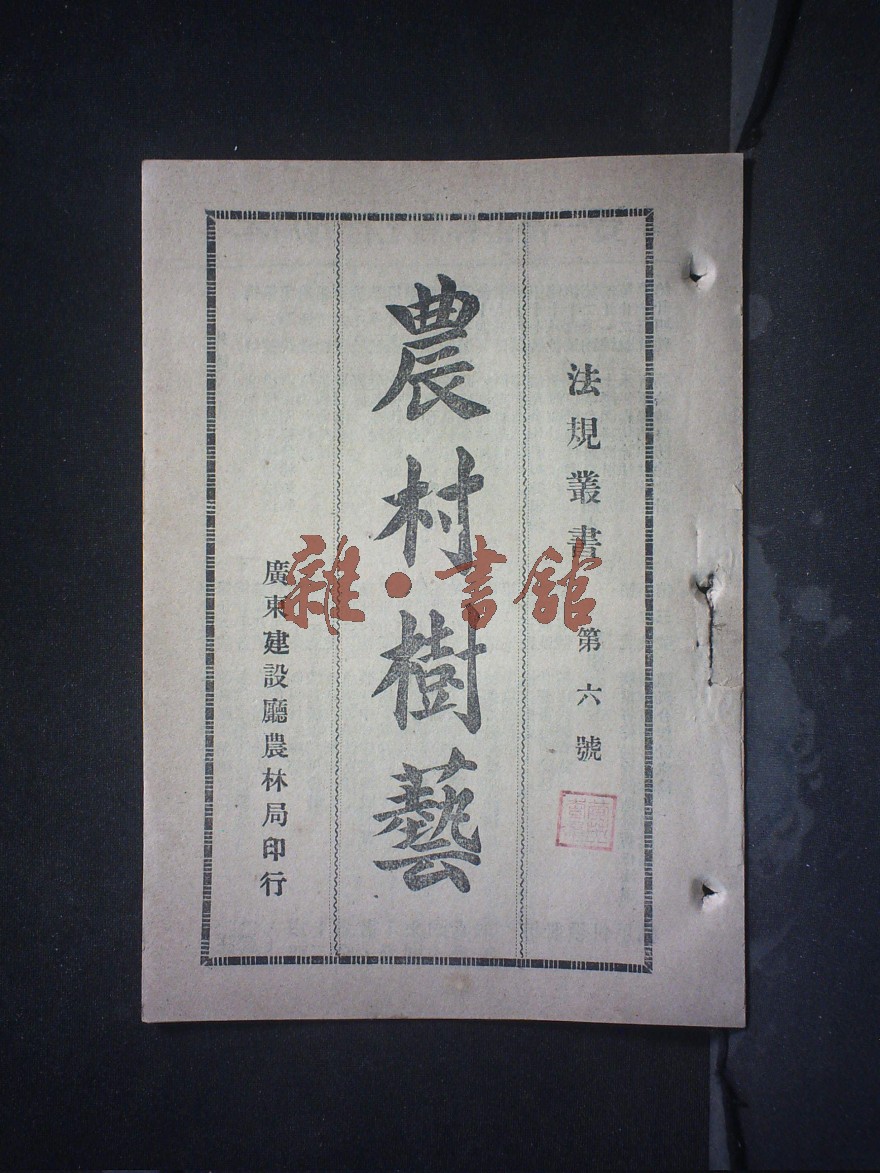 法規叢書第六號
農村樹藝
廣東建設廳農林局印行
雜·書館